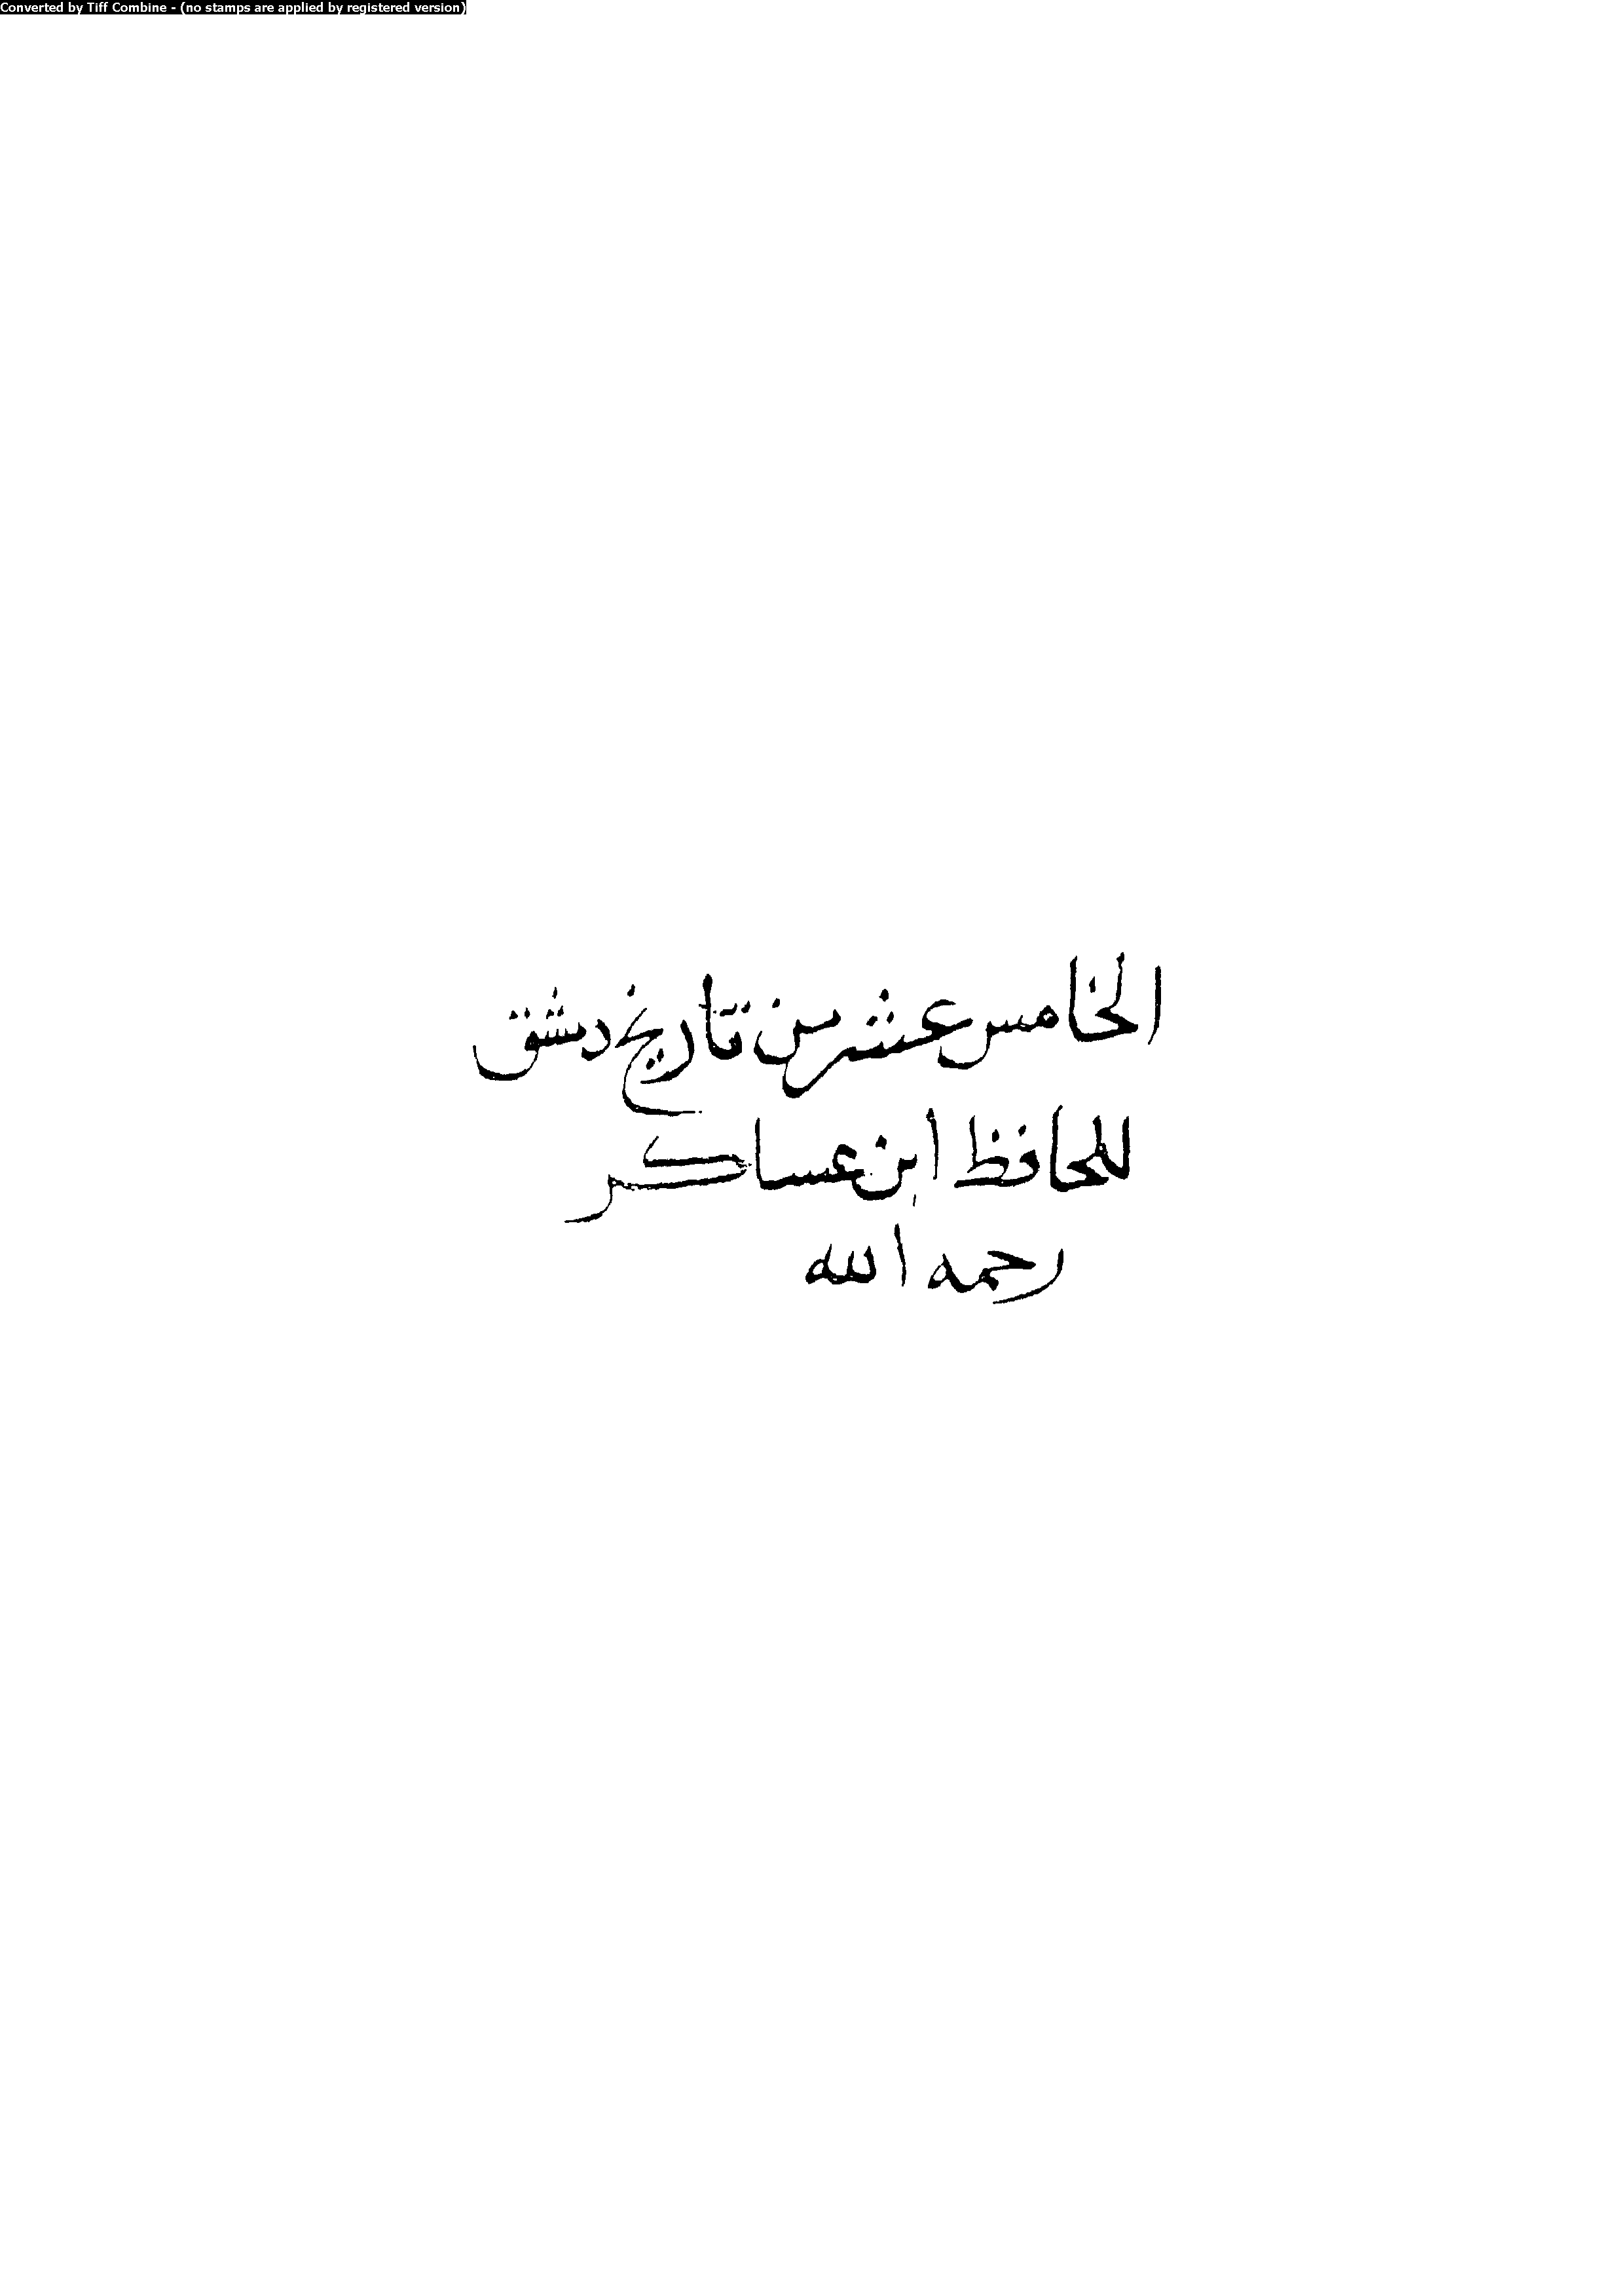 Converted by Tiff Combine - (no stamps are applied by registered version)
الخامس عشر من تاريخ دمشق
للحافظ ابن عساكر
رحمه الله